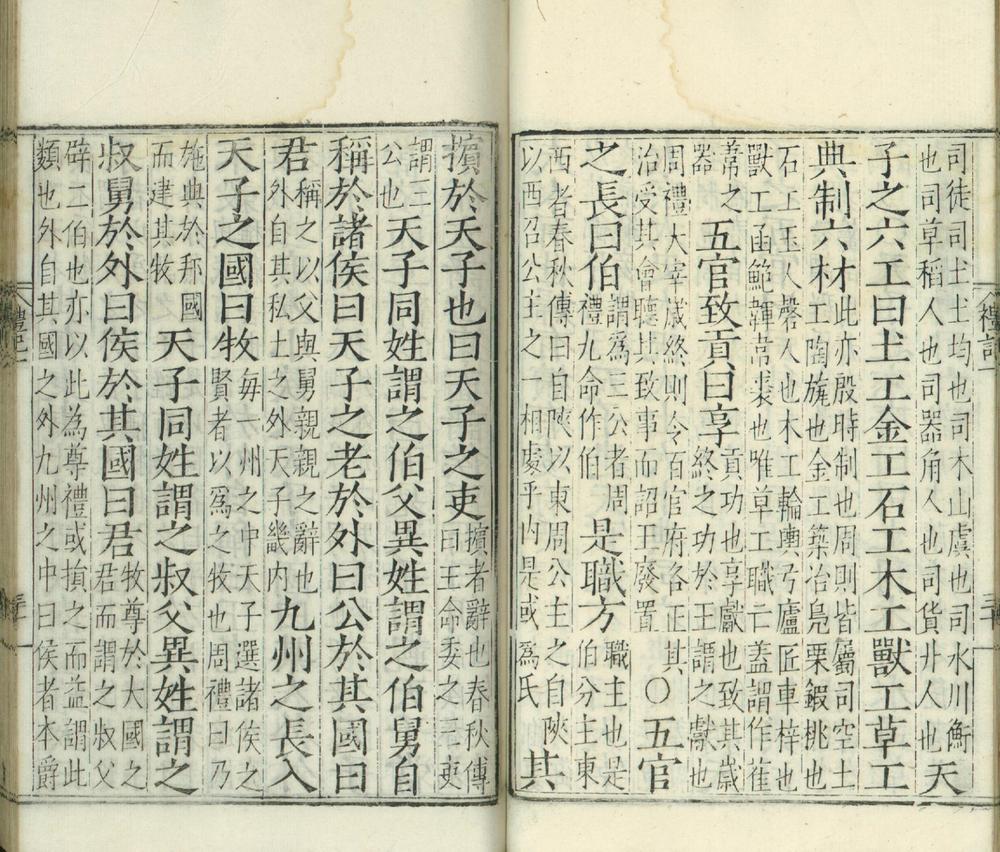 司徒司土土均也司木山虞也司水川衡
也司草稻人也司器角人也司貨井人也
天
子之六工曰土工金工石工木工獸工草工
典制六材
此亦殷時制也周則皆屬司空土
工陶旊也金工築冶鳧栗鍜桃也
石工玉人磬人也木工輪輿弓廬匠車梓也
獸工函鮑韗韋裘也唯草工職亡蓋謂作萑
葦之
器
五官致貢曰享
貢功也享獻也致其歲
終之功於王謂之獻也
周禮大宰歲終則令百官府各正其
治受其會聽其致事而詔王廢置
○五官
之長曰伯
謂爲三公者周
禮九命作伯
是職方
職主也是
伯分主東
西者春秋傳曰自陝以東周公主之自陝
以西召公主之一相處乎内是或爲氏
其
禮記一
三十
擯於天子也曰天子之吏
擯者辭也春秋傳
曰王命委之三吏
謂三
公也
天子同姓謂之伯父異姓謂之伯舅自
稱於諸侯曰天子之老於外曰公於其國曰
君
稱之以父與舅親親之辭也
外自其私土之外天子畿内
九州之長入
天子之國曰牧
每一州之中天子選諸侯之
賢者以爲之牧也周禮曰乃
施典於邦國
而建其牧
天子同姓謂之叔父異姓謂之
叔舅於外曰侯於其國曰君
牧尊於大國之
君而謂之叔父
辟二伯也亦以此為尊禮或損之而益謂此
類也外自其國之外九州之中曰侯者本爵
禮記一
三十